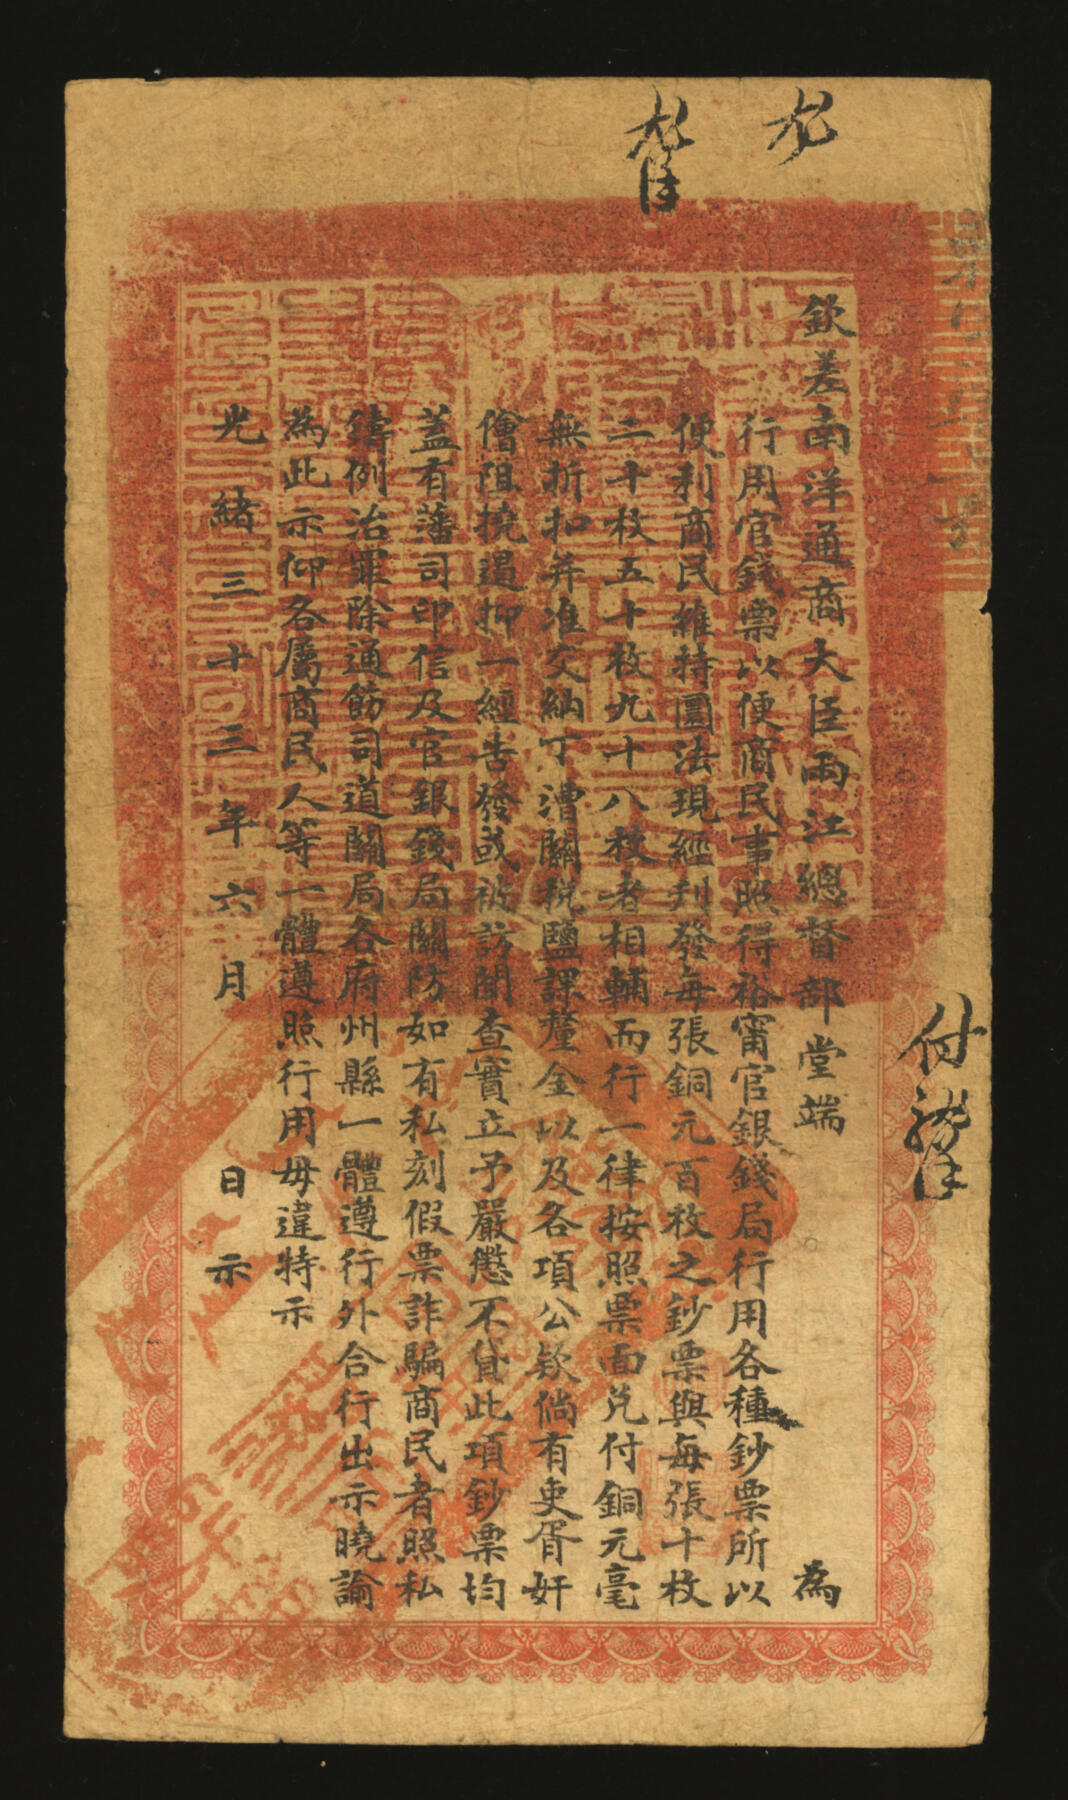 欽差南洋通商大臣兩江總督部堂端 為
行用官錢票以便商民事照得裕甯官銀錢局行用各種鈔票所以
便利商民維持圜法現經刋發每張銅元百枚之鈔票與每張十枚
二十枚五十枚九十八枚者相輔而行一律按照票面兌付銅元毫
無折扣并准交納丁漕關稅鹽課釐金以及各項公欵倘有吏胥奸
儈阻撓遏抑一經告發或被訪聞查實立予嚴懲不貸此項鈔票均
蓋有藩司印信及官銀錢局關防如有私刻假票詐騙商民者照私
鑄例治罪除通飭司道關局各府州縣一體遵行外合行出示曉諭
為此示仰各屬商民人等一體遵照行用毋違特示
光緒三十三年六月 日示
付